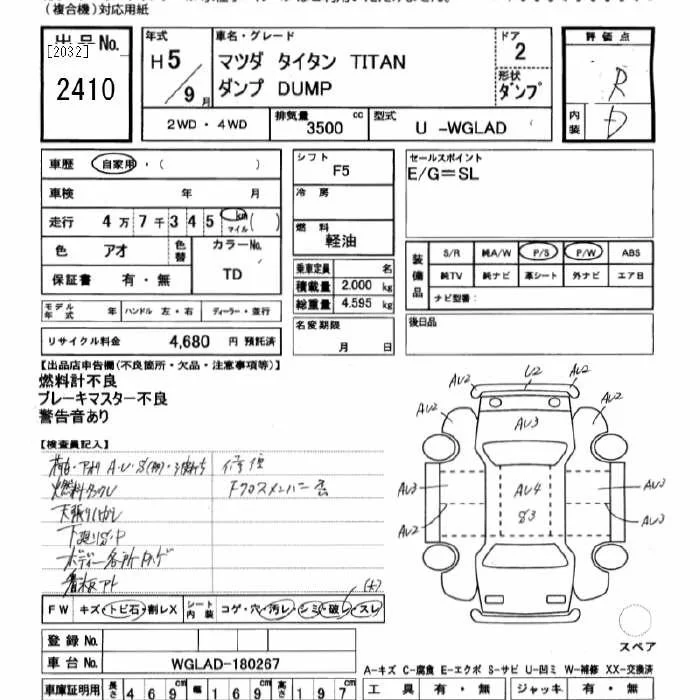 (複合機)対応用紙
出品No.
[2032]
2410
年式
H5/9月
車名・グレード
マツダ タイタン TITAN
ダンプ DUMP
ドア
2
形状
ダンプ
評価点
R
内装
D
2WD・4WD
排気量
3500 cc
型式
U -WGLAD
車歴 自家用・( )
車検 年 月
走行 4万7千345 km マイル ( )
色 アオ
色替
カラーNo.
TD
保証書 有・無
モデル年式 年 ハンドル 左・右 ディーラー・並行
リサイクル料金 4,680 円 預託済
シフト
F5
冷房
燃料
軽油
乗車定員 名
積載量 2.000 kg
総重量 4.595 kg
名変期限
月 日
セールスポイント
E/G=SL
装備品
S/R 純A/W P/S P/W ABS
純TV 純ナビ 革シート 外ナビ エアB
ナビ型番:
後日品
【出品店申告欄(不良箇所・欠品・注意事項等)】
燃料計不良
ブレーキマスター不良
警告音あり
【検査員記入】
修復
下廻りS・P
ボディー各所
看板アト
FW キズ・トビ石・割レX
シート内装 コゲ・穴・汚レ・シミ・破レ・スレ
(大)
AU2 U2 AU2
AU2 AU2
AU3
AU3 AU4 AU3
AU2 S3 AU3
スペア
登録No.
車台No. WGLAD-180267
A-キズ C-腐食 E-エクボ S-サビ U-凹ミ W-補修 XX-交換済
車庫証明用 長さ 469cm 幅 169cm 高さ 197cm
工具 有・無 ジャッキ 有・無